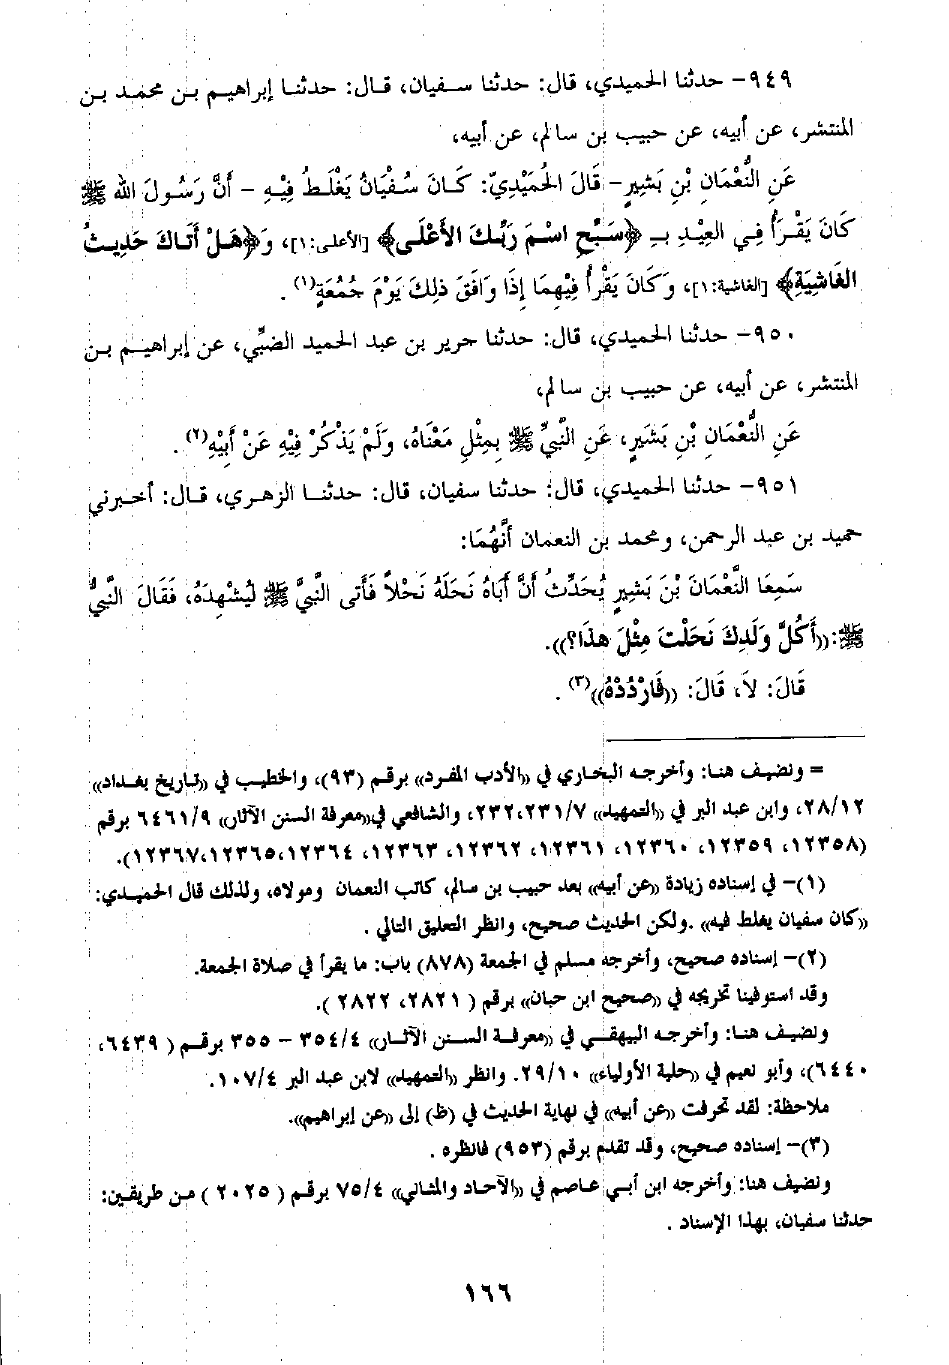 ٩٤٩- حدثنا الحميدي، قال: حدثنا سفيان، قال: حدثنا إبراهيم بن محمد بن
المنتشر، عن أبيه، عن حبيب بن سالم، عن أبيه،
عَنِ النُّعْمَانِ بْنِ بَشِيرٍ- قَالَ الحُمَيْدِيّ: كَانَ سُفْيَانُ يَغْلَطُ فِيْهِ - أَنَّ رَسُولَ الله ﷺ
كَانَ يَقْرَأُ فِي العِيْدِ بـِ ﴿سَبِّحِ اسْمَ رَبِّكَ الأَعْلَى﴾ [الأعلى:١]، وَ﴿هَلْ أَتَاكَ حَدِيثُ
الغَاشِيَةِ﴾ [الغاشية:١]، وَكَانَ يَقْرأُ فِيْهِمَا إِذَا وَافَقَ ذلِكَ يَوْمَ جُمُعَةٍ(١) .
٩٥٠- حدثنا الحميدي، قال: حدثنا جرير بن عبد الحميد الضبِّي، عن إبراهيم بن
المنتشر، عن أبيه، عن حبيب بن سالم،
عَنِ النُّعْمَانِ بْنِ بَشِيرٍ، عَنِ النَّبِيِّ ﷺ بِمِثْلِ مَعْنَاهُ، وَلَمْ يَذْكُرْ فِيْهِ عَنْ أَبِيْهِ(٢) .
٩٥١- حدثنا الحميدي، قال: حدثنا سفيان، قال: حدثنا الزهري، قال: أخبرني
حميد بن عبد الرحمن، ومحمد بن النعمان أَنَّهُمَا:
سَمِعَا النُّعْمَانَ بْنَ بَشِيرٍ يُحَدِّثُ أَنَّ أَبَاهُ نَحَلَهُ نَحْلاً فَأَتى النَّبِيَّ ﷺ لِيُشْهِدَهُ، فَقَالَ النَّبِيُّ
ﷺ: ((أَكُلَّ وَلَدِكَ نَحَلْتَ مِثْلَ هذَا؟)).
قَالَ: لاَ، قَالَ: ((فَارْدُدْهُ))(٣) .
= ونضيف هنا: وأخرجه البخاري في ((الأدب المفرد)) برقم (٩٣)، والخطيب في ((تاريخ بغداد))
٢٨/١٢، وابن عبد البر في ((التمهيد)) ٢٣٢،٢٣١/٧، والشافعي في((معرفة السنن الآثار)) ٦٤٦١/٩ برقم
(١٢٣٥٨، ١٢٣٥٩، ١٢٣٦٠، ١٢٣٦١، ١٢٣٦٢، ١٢٣٦٣، ١٢٣٦٤،١٢٣٦٥،١٢٣٦٧).
(١)- في إسناده زيادة ((عن أبيه)) بعد حبيب بن سالم، كاتب النعمان ومولاه، ولذلك قال الحميدي:
((كان سفيان يغلط فيه)) .ولكن الحديث صحيح، وانظر التعليق التالي .
(٢)- إسناده صحيح، وأخرجه مسلم في الجمعة (٨٧٨) باب: ما يقرأ في صلاة الجمعة.
وقد استوفينا تخريجه في ((صحيح ابن حبان)) برقم ( ٢٨٢١، ٢٨٢٢ ).
ونضيف هنا: وأخرجه البيهقي في ((معرفة السنن الآثار)) ٣٥٤/٤ - ٣٥٥ برقم ( ٦٤٣٩،
٦٤٤٠)، وأبو نعيم في ((حلية الأولياء)) ٢٩/١٠. وانظر ((التمهيد)) لابن عبد البر ١٠٧/٤.
ملاحظة: لقد تحرفت ((عن أبيه)) في نهاية الحديث في (ظ) إلى ((عن إبراهيم)).
(٣)- إسناده صحيح، وقد تقدم برقم (٩٥٣) فانظره .
ونضيف هنا: وأخرجه ابن أبي عاصم في ((الآحاد والمثالي)) ٧٥/٤ برقم ( ٢٠٢٥ ) من طريقين:
حدثنا سفيان، بهذا الإسناد .
١٦٦